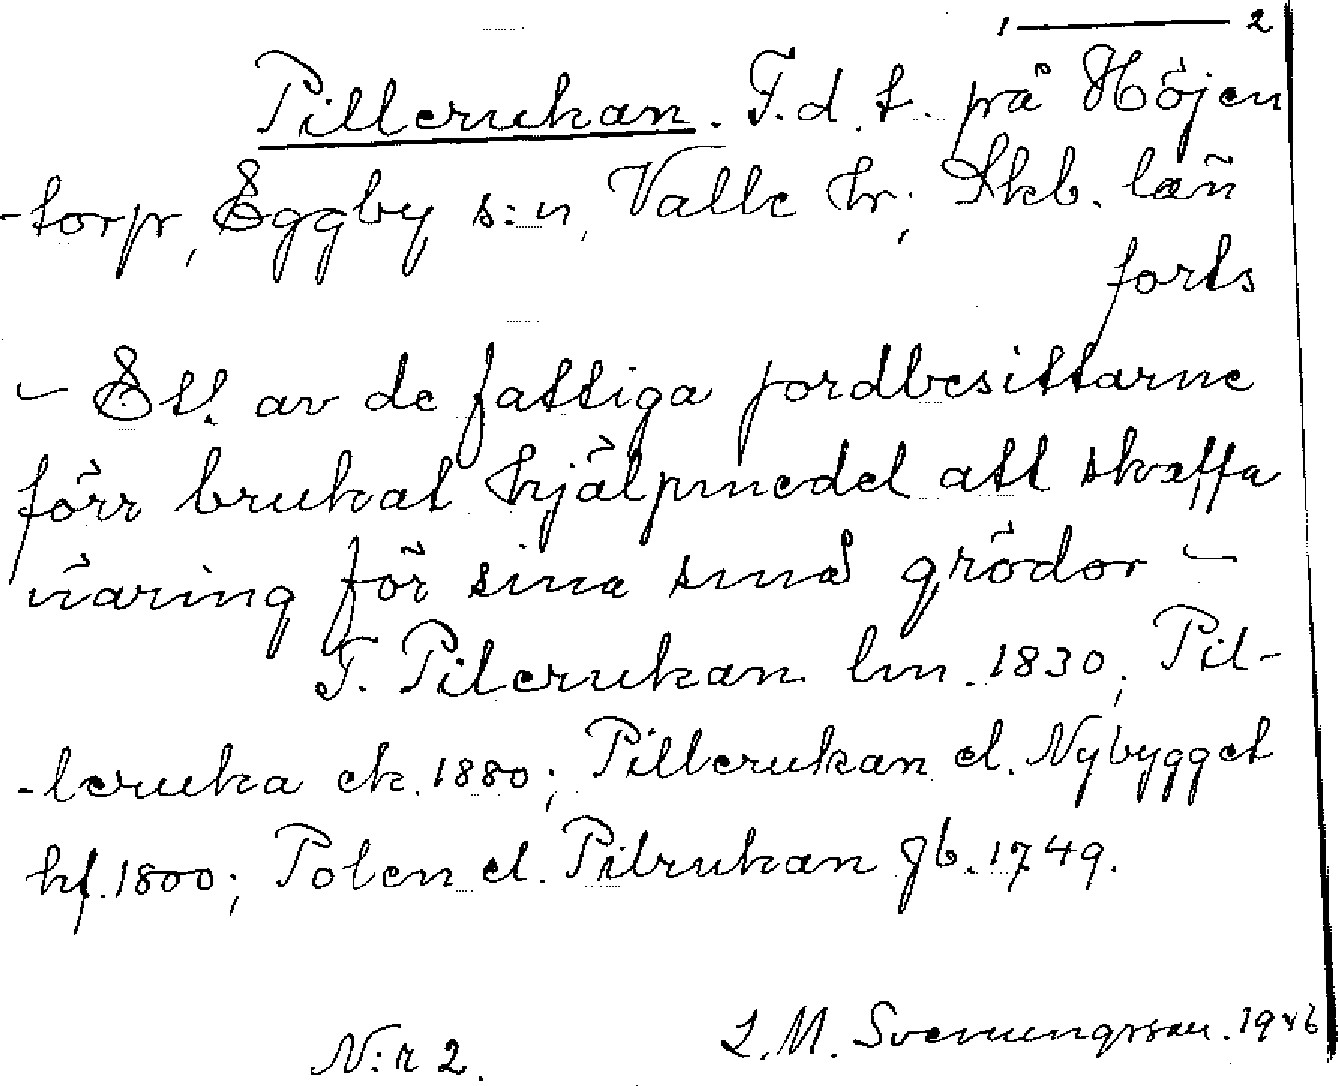 1 — 2
Pillerukan. F.d. t. på Höjen
-torp, Eggby s:n, Valle hr; Skb. län
forts
- Ett av de fattiga jordbesittarne
förr brukat hjälpmedel att skaffa
näring för sina små grödor -
F. Pilerukan lm. 1830; Pil-
-leruka ek. 1880; Pillerukan el. Nybygget
hf. 1800; Polen el. Pilrukan gb. 1749.
N:r 2. L.M. Svenungsson. 1946